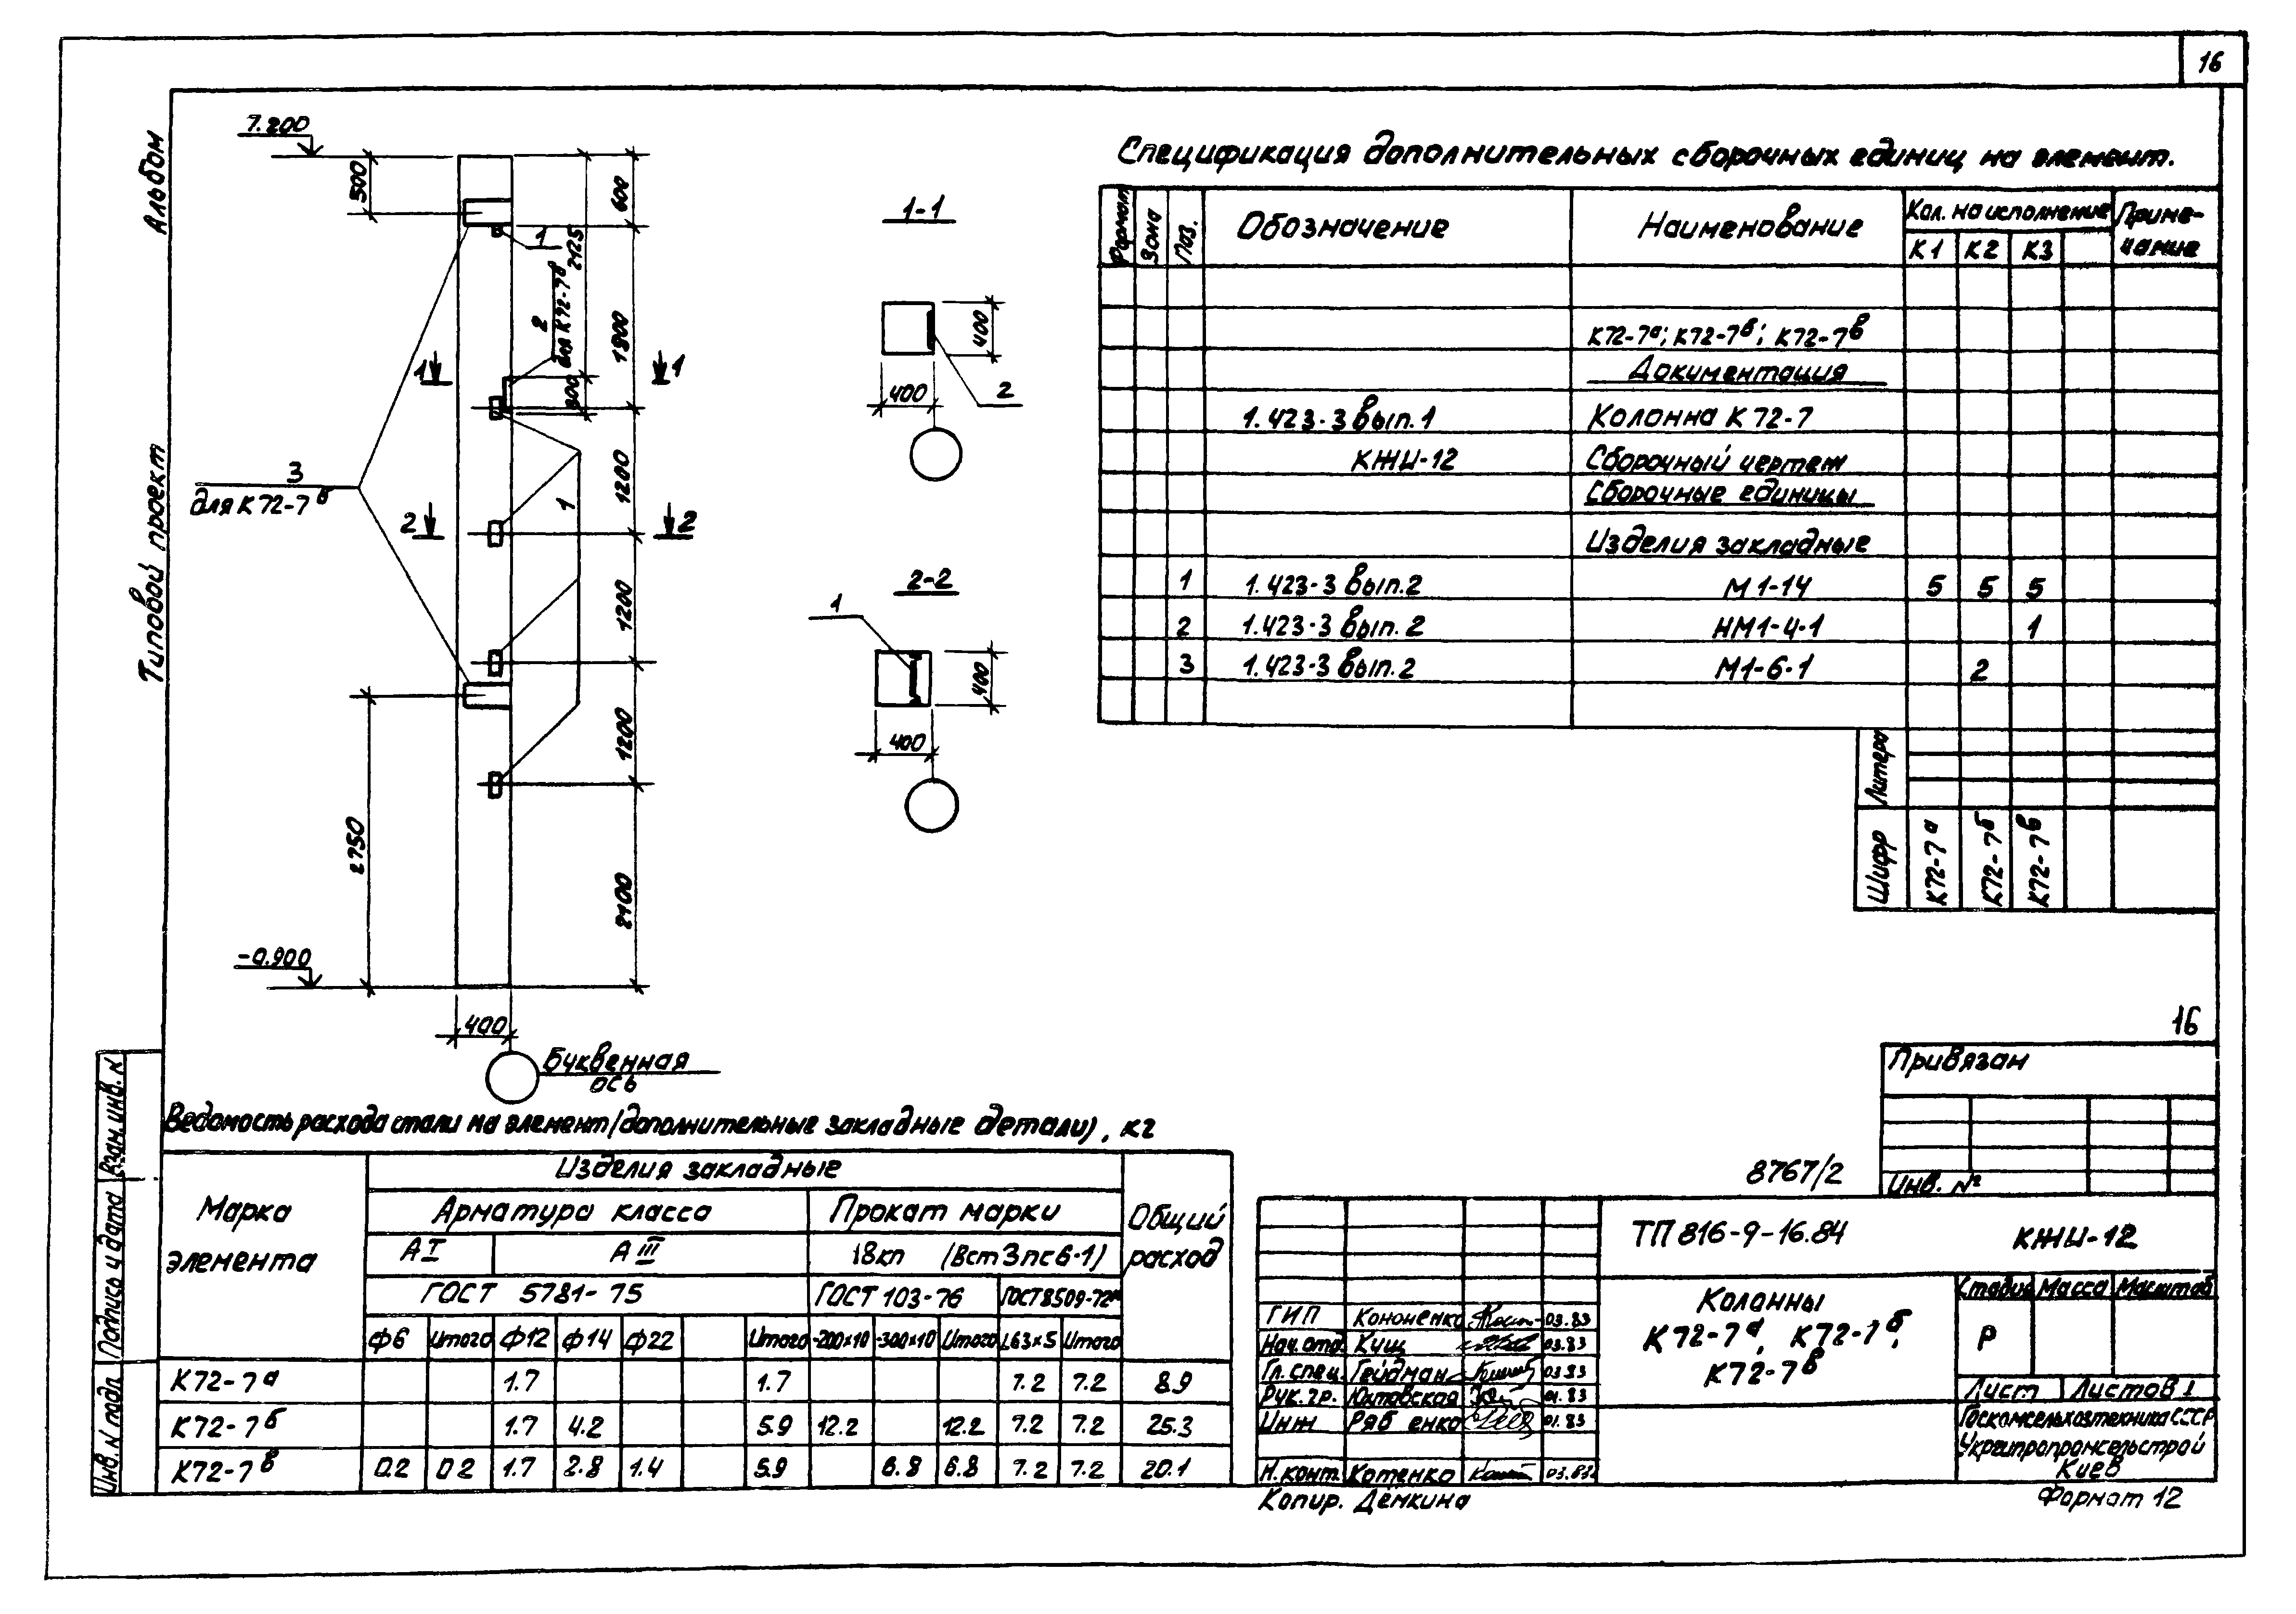 16
Альбом
Типовой проект
7.200
500
600
1
2125
2
для К72-7в
1800
1
1
300
1200
3
для К72-7б
1
2
2
1200
1200
2750
2100
-0.900
400
Буквенная
ось
1-1
400
400
2
2-2
1
400
400
Спецификация дополнительных сборочных единиц на элемент.
Формат Зона Поз. Обозначение Наименование Кол. на исполнение Приме-
К1 К2 К3 чание
К72-7а; К72-7б; К72-7в
Документация
1.423-3 вып.1 Колонна К72-7
КЖИ-12 Сборочный чертеж
Сборочные единицы
Изделия закладные
1 1.423-3 вып.2 М1-14 5 5 5
2 1.423-3 вып.2 НМ1-4-1 1
3 1.423-3 вып.2 М1-6-1 2
Литера
Шифр К72-7а К72-7б К72-7в
16
Привязан
Инв. №
8767/2
Ведомость расхода стали на элемент (дополнительные закладные детали), кг
Марка элемента Изделия закладные Общий расход
Арматура класса Прокат марки
А I А III 18кп (Вст3пс6-1)
ГОСТ 5781-75 ГОСТ 103-76 ГОСТ 8509-72*
Ф6 Итого Ф12 Ф14 Ф22 Итого -200х10 -300х10 Итого L63х5 Итого
К72-7а 1.7 1.7 7.2 7.2 8.9
К72-7б 1.7 4.2 5.9 12.2 12.2 7.2 7.2 25.3
К72-7в 0.2 0.2 1.7 2.8 1.4 5.9 6.8 6.8 7.2 7.2 20.1
Взам. инв. N
Подпись и дата
Инв. N подл
ТП 816-9-16.84 КЖИ-12
Колонны
К72-7а, К72-7б,
К72-7в
Стадия Масса Масштаб
Р
Лист Листов 1
Госкомсельхозтехника СССР
Укргипропромсельстрой
Киев
ГИП Кононенко 03.83
Нач. отд. Кущ 03.83
Гл. спец. Гейдман 03.83
Рук. гр. Юхтовская 01.83
Инж Ряб енко 01.83
Н. конт. Котенко 03.83
Копир. Дёмкина
Формат 12